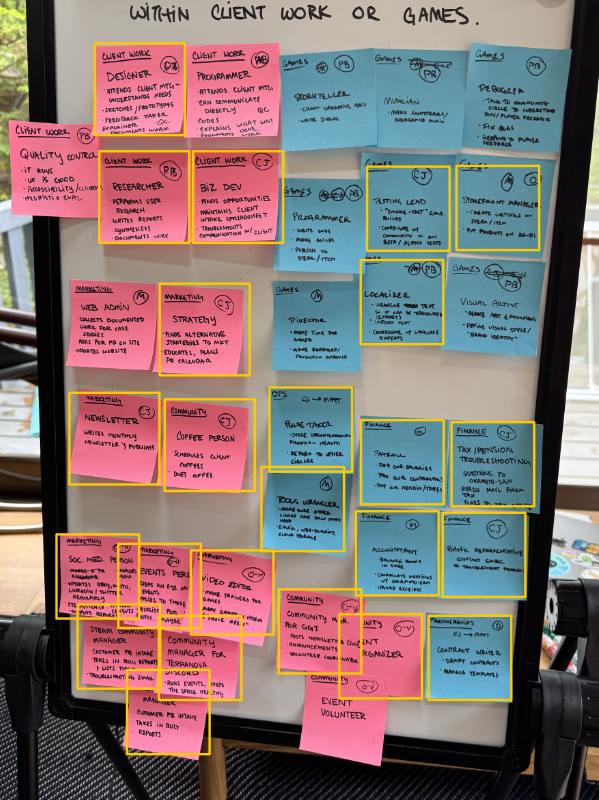 WITHIN CLIENT WORK OR GAMES.
CLIENT WORK
DESIGNER
· ATTENDS CLIENT MTG-
UNDERSTANDS NEEDS
· SKETCHES/PROTOTYPES
· FEEDBACK TAKER
EXPLAINER QC
DOCUMENTS WORK
CLIENT WORK PB
PROGRAMMER
· ATTENDS CLIENT MTG.
CAN COMMUNICATE
DIRECTLY QC
CODES
· EXPLAINS WHAT WAS
DONE
DOCUMENTS WORK
GAMES PB
STORYTELLER
· WRITE DIALOG
GAMES PB
MUSICIAN
GAMES PB
DEBUGGER
· TALK TO COMMUNITY
CIRCLE TO UNDERSTAND
BUG/PLAYER FEEDBACK
· FIX BUGS
· RESPOND TO PLAYER
FEEDBACK
CLIENT WORK PB
QUALITY CONTROL
· IT RUNS
· UX IS GOOD
· ACCESSIBILITY
· HEURISTIC EVAL
CLIENT WORK PB
RESEARCHER
· PERFORMS USER
RESEARCH
· WRITES REPORTS
SYNTHESIZES
· DOCUMENTS WORK
CLIENT WORK CJ
BIZ DEV
· FINDS OPPORTUNITIES
· MAINTAINS CLIENT
INTAKE SPREADSHEET
· TROUBLESHOOTS
COMMUNICATION W/ CLIENT
GAMES PB
PROGRAMMER
· WRITE CODE
· MAKE BUILDS
· PUBLISH TO
STEAM/ITCH
GAMES CJ
TESTING LEAD
· "SMOKE-TEST" GAME
BUILDS
· COORDINATE W/
COMMUNITY TO RUN
BETA/ALPHA TESTS
GAMES M O
STOREFRONT MANAGER
· CREATE LISTINGS ON
STEAM/ITCH
· PUT PRODUCTS ON
MARKETING M
WEB ADMIN
· COLLECTS DOCUMENTED
WORK FOR CASE
STUDIES
ASKS FOR PB ON SITE
· UPDATES WEBSITE
MARKETING CJ
STRATEGY
· FINDS ALTERNATIVE
STRATEGIES TO MKT
EDUCATES, PLANS
PR CALENDAR
GAMES M
DIRECTOR
· MAKE TIME FOR
GAMES
· MAKE
PRODUCTION SCHEDULE
GAMES CJ PB
LOCALIZER
· INPUT TEXT
· COORDINATE W/ LANGUAGE
EXPERTS
GAMES PB
VISUAL ARTIST
· DEFINE VISUAL STYLE/
"BRAND IDENTITY"
MARKETING CJ
NEWSLETTER
WRITES MONTHLY
NEWSLETTER & PUBLISHES
COMMUNITY CJ
COFFEE PERSON
· SCHEDULES CLIENT
COFFEES
· DOES COFFEE
OPS CJ → MATT
PULSE TAKER
· CHECK ORGANIZATIONAL
FINANCIAL HEALTH
· REPORT TO OTHER
CIRCLES
FINANCE M
PAYROLL
· PAY OUR SALARIES
· PAY OUR CONTRACTORS
· PAY OUR PENSION/TAXES
FINANCE CJ
TAX/PENSION
TROUBLESHOOTING
QUESTIONS TO
OKAMOTO-SAN
· READS MAIL FROM
TAX
M
TOOLS WRANGLER
· MAKE SURE OTHER
CIRCLES HAVE TOOLS THEY
NEED
CLOUD STORAGE
FINANCE M
ACCOUNTANT
· BALANCE BOOKS
IN XERO
· COORDINATE MEETINGS
W/ OKAMOTO-SAN
· UPLOAD RECEIPTS
FINANCE CJ
BANK REPRESENTATIVE
· CONTACT BANKS
TO TROUBLESHOOT
MARKETING
SOC. MED. PERSON
CALENDAR
· UPDATES
LINKEDIN/TWITTER
REGULARLY
MARKETING
EVENTS PERSON
KEEPS AN EYE ON
EVENTS
APPLIES TO THOSE
MARKETING O-M
VIDEO EDITOR
· MAKE TRAILERS FOR
GAMES
COMMUNITY O-V
COMMUNITY MGR.
FOR GGJ
· POSTS NEWSLETTER
· ANNOUNCEMENTS
· VOLUNTEER COORDINATOR
O-V
EVENT
ORGANIZER
PARTNERSHIPS O
CJ → MATT
CONTRACT WRITER
· DRAFT CONTRACTS
· MAKING TEMPLATES
STEAM COMMUNITY
MANAGER
· CUSTOMER PB INTAKE
TAKES IN BUG REPORTS
& LISTS THEM
· TROUBLESHOOTING EMAIL
COMMUNITY
MANAGER FOR
TERRANOVA
DISCORD
· RUNS EVENTS, KEEPS
THE SPACE HEALTHY
MANAGER
CUSTOMER PB INTAKE
TAKES IN BUG
REPORTS
COMMUNITY O-V
EVENT
VOLUNTEER